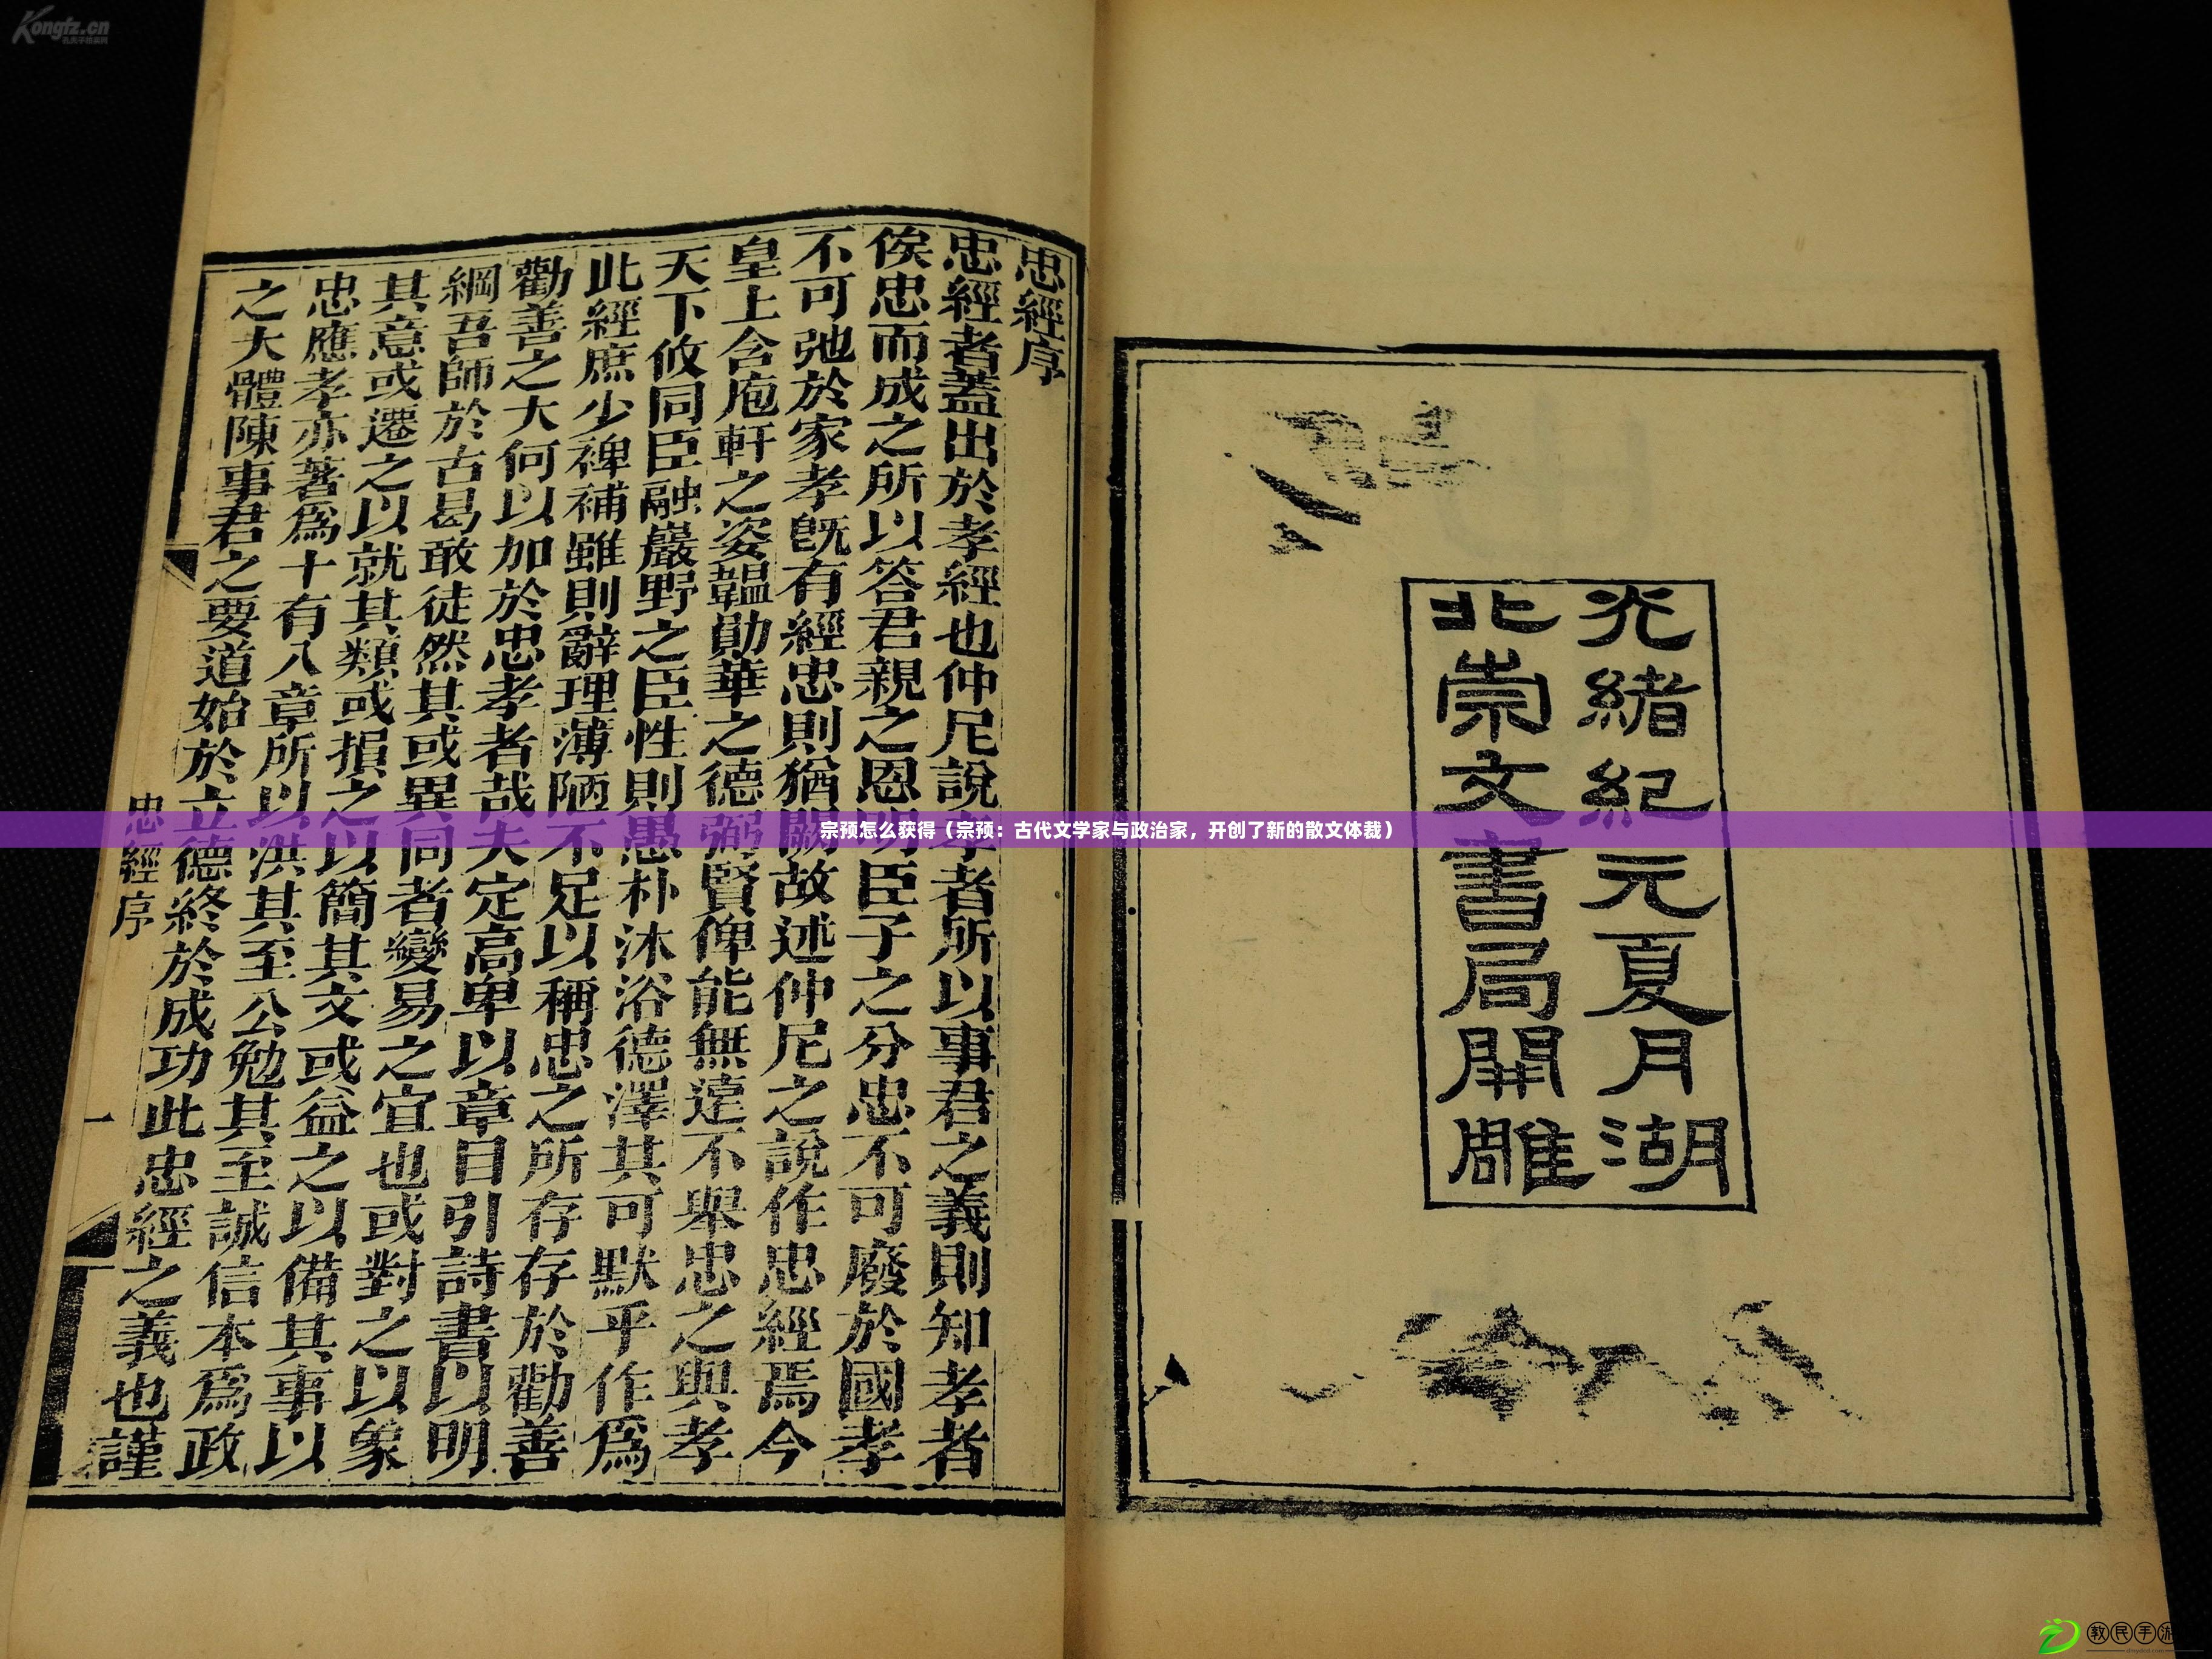 Kongfz.cn
光緒紀元夏月湖
北崇文書局開雕
忠經序
忠經者蓋出於孝經也仲尼說孝者所以事君之義則知孝者
俟忠而成之所以答君親之恩明臣子之分忠不可廢於國孝
不可弛於家孝既有經忠則猶闕故述仲尼之說作忠經焉今
皇上含庖軒之姿韞勛華之德弼賢俾能無遠不舉忠之與孝
天下攸同臣融巖野之臣性則愚朴沐浴德澤其可默乎作爲
此經庶少裨補雖則辭理薄陋不足以稱忠之所存存於勸善
勸善之大何以加於忠孝者哉夫定高卑以章目引詩書以明
綱吾師於古曷敢徒然其或異同者變易之宜也或對之以象
其意或遷之以就其類或損之以簡其文或益之以備其事以
忠應孝亦著爲十有八章所以洪其至公勉其至誠信本爲政
之大體陳事君之要道始於立德終於成功此忠經之義也謹
忠經序
一
宗预怎么获得（宗预：古代文学家与政治家，开创了新的散文体裁）
教民手游